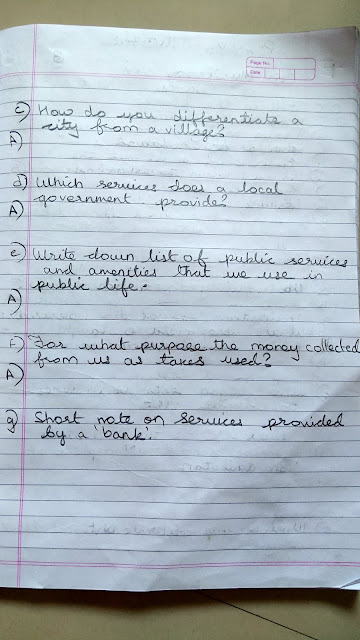 Page No.
Date
c) How do you differentiate a
city from a village?
A)
d) Which services does a local
government provide?
A)
e) Write down list of public services
and amenities that we use in
public life.
A)
f) For what purpose the money collected
from us as taxes used?
A)
g) Short note on services provided
by a 'bank'.